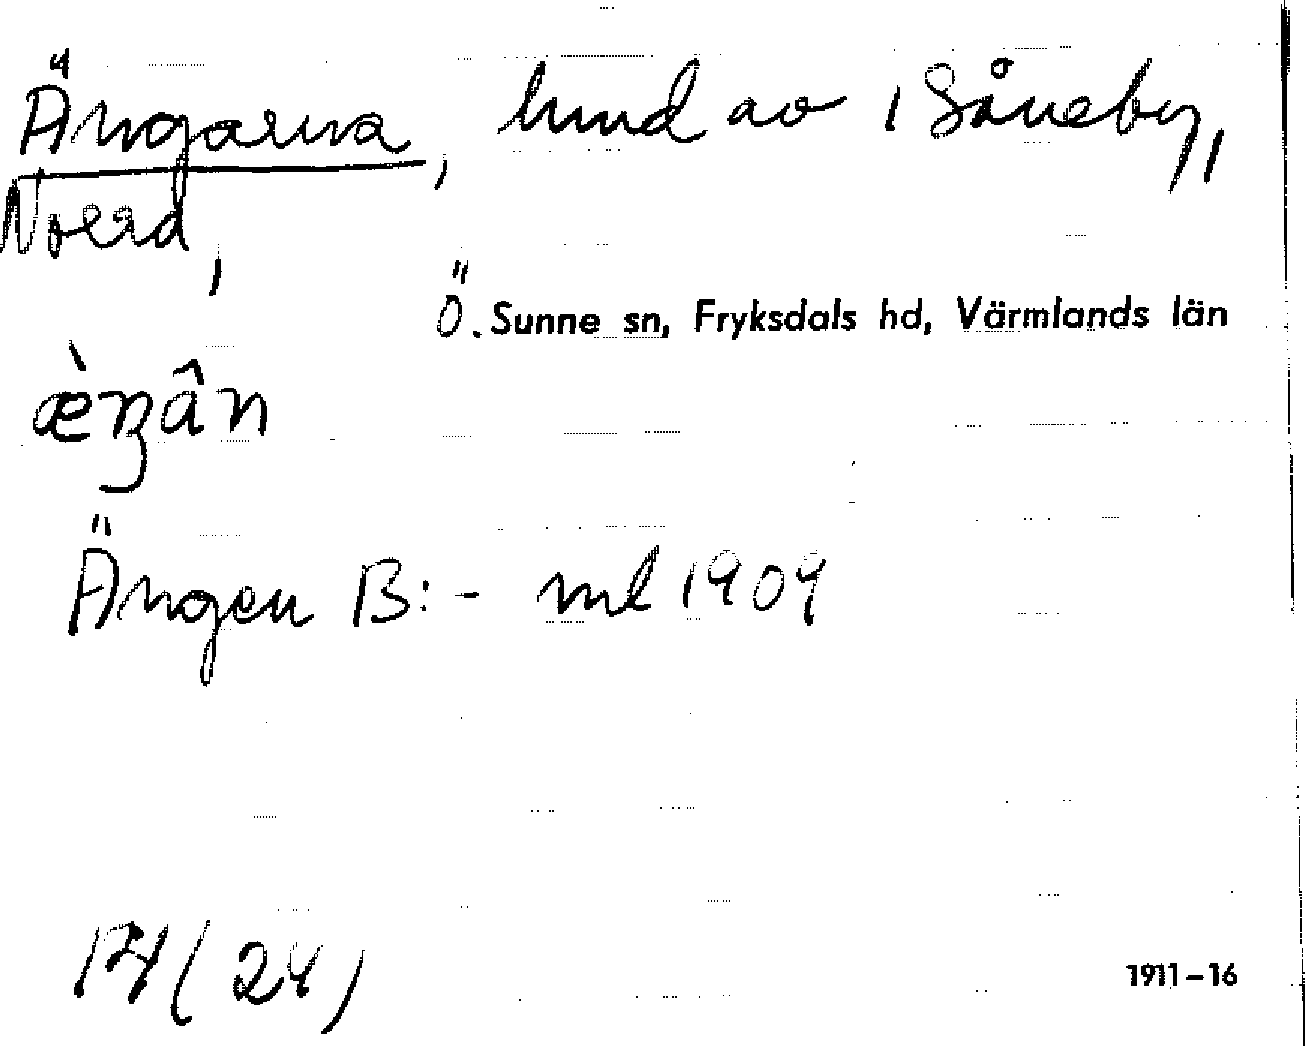 Ängarna, hmd av 1 Såneby,
Norra,
Ö. Sunne sn, Fryksdals hd, Värmlands län
æ̀ŋân
Ängen B:- ml 1909
14 (24)
1911-16